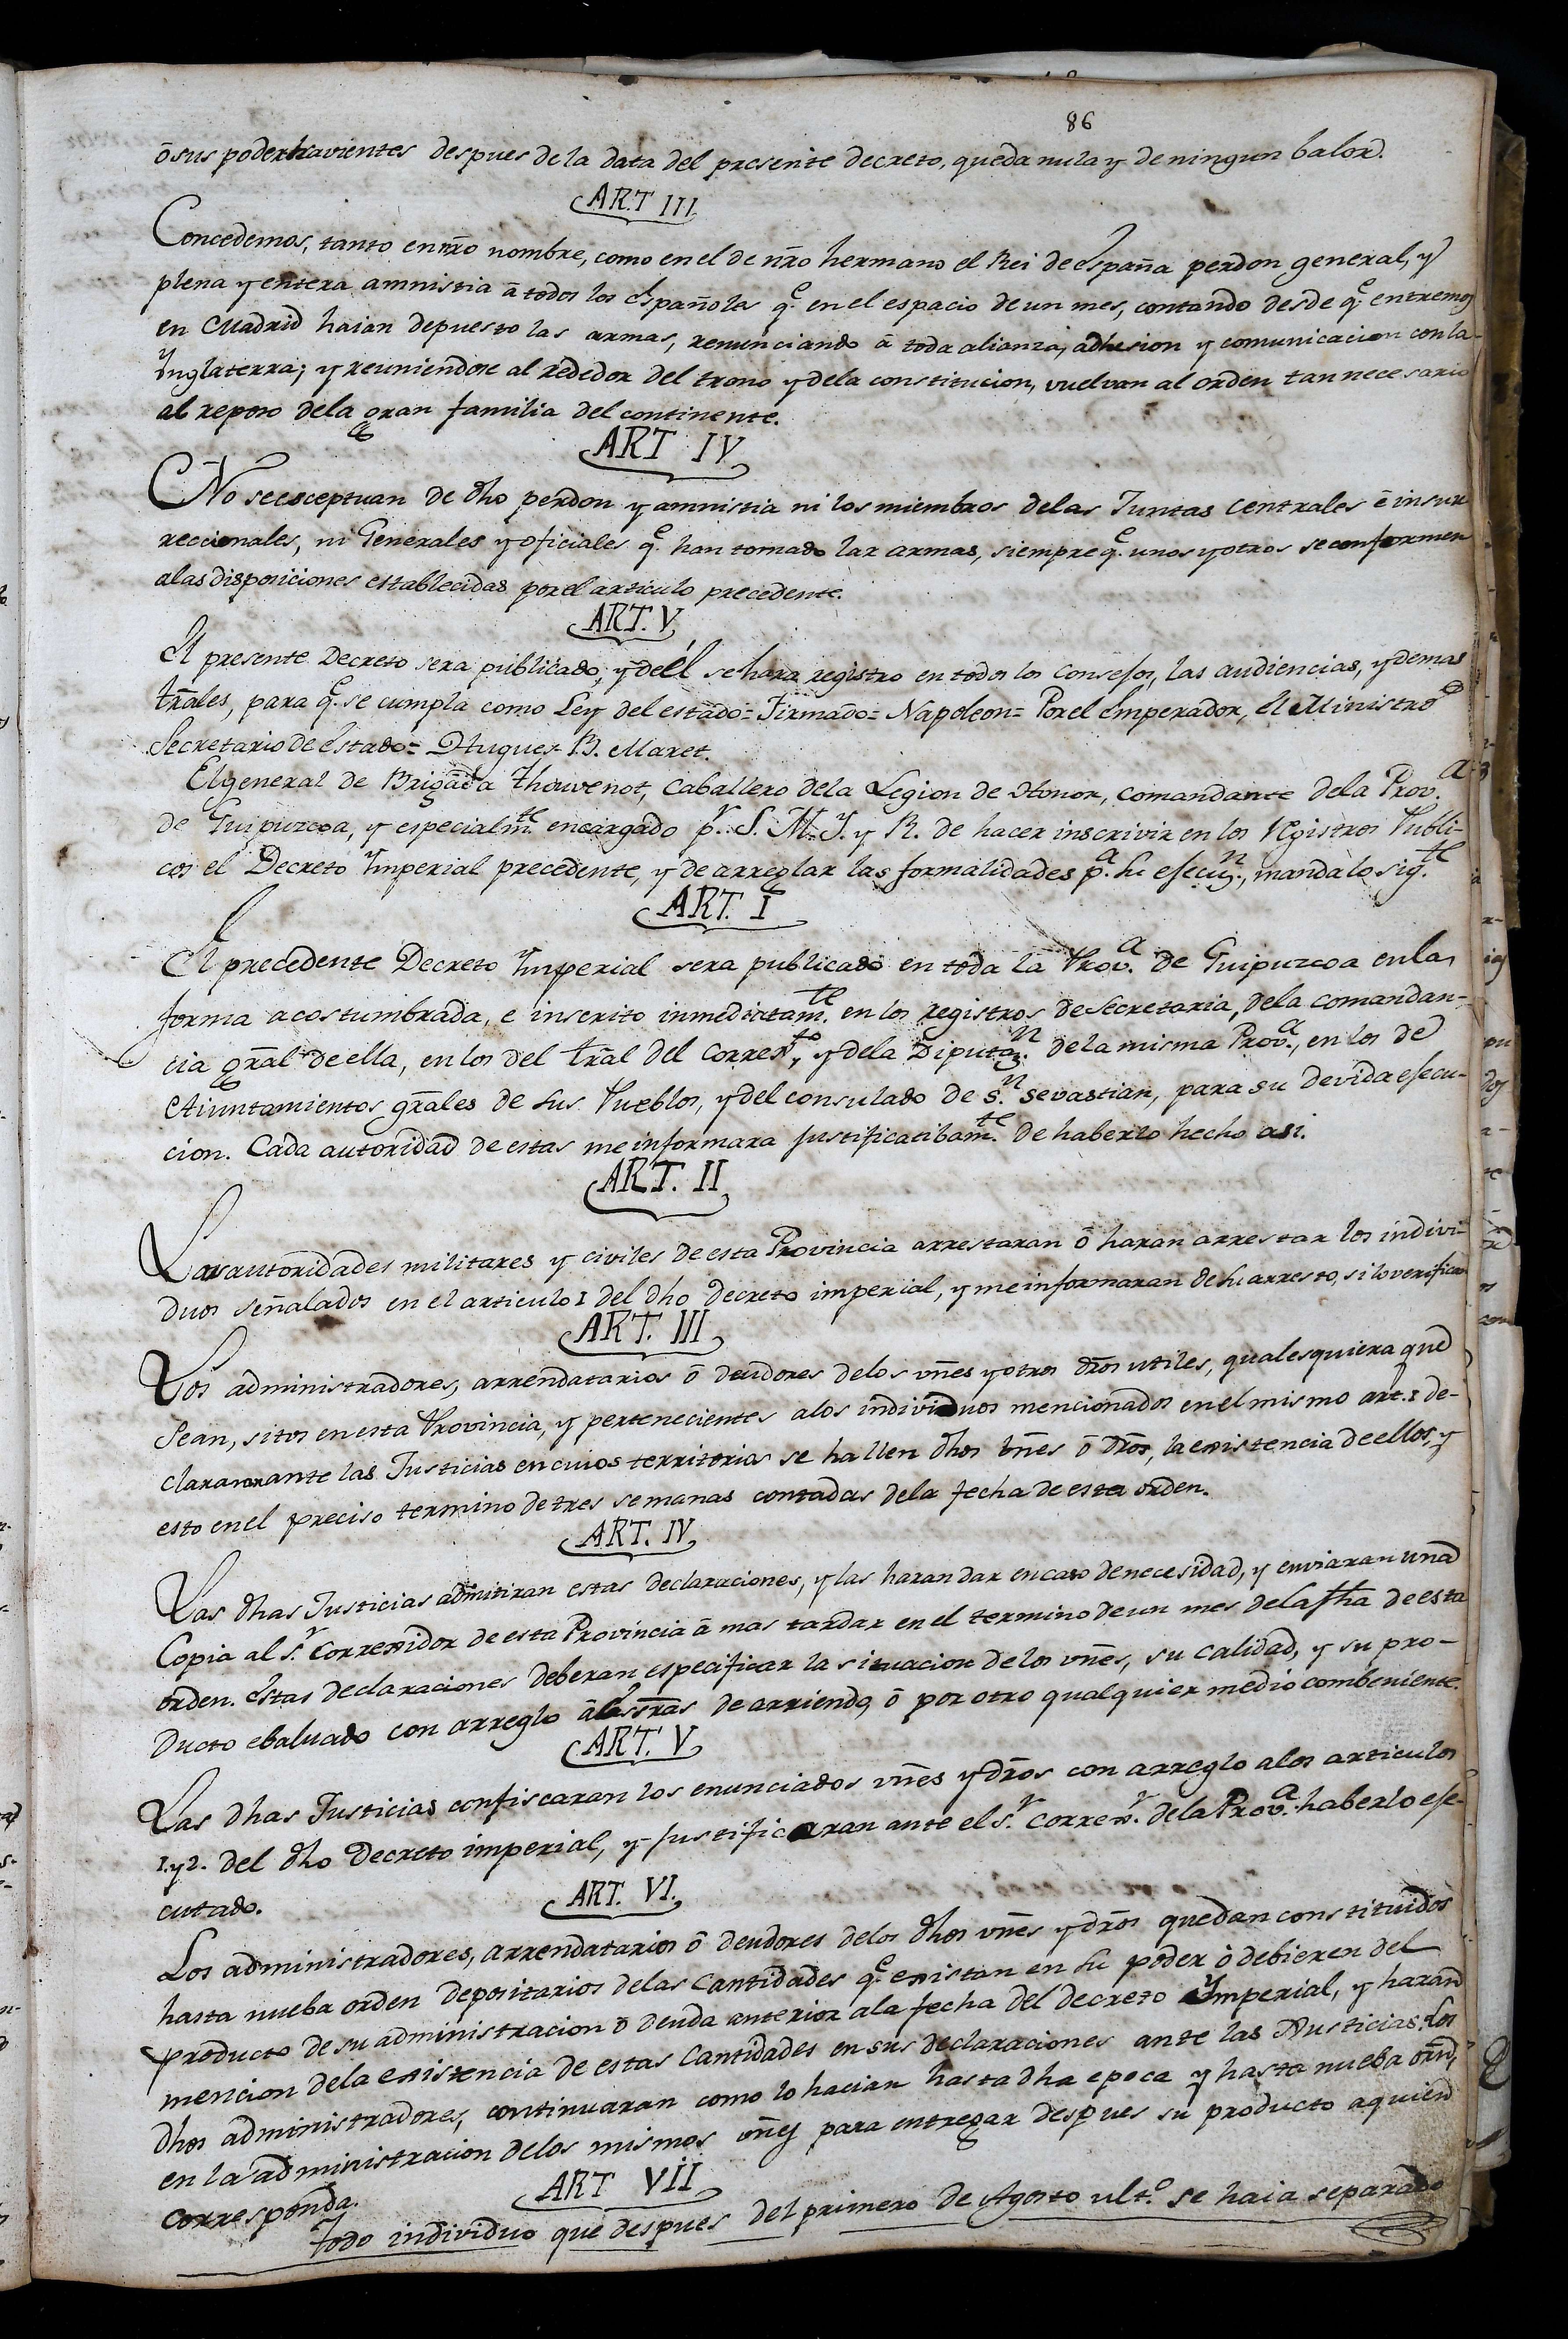 86
ô sus poderhavientes despues de la data del presente decreto, queda nula y de ningun balor.
ART III.
Concedemos, tanto en nr̃o nombre, como en el de nr̃o hermano el Rei de España perdon general, y
plena y entera amnistia â todos los Españoles q.e en el espacio de un mes, contando desde q.e entremos
en Madrid haian depuesto las armas, renunciando â toda alianza, adhesion y comunicacion con la
Ynglaterra; y reuniendose al rededor del trono y de la constitucion, vuelvan al orden tan necesario
al reposo de la gran familia del continente.
ART IV
No se esceptuan de dho perdon y amnistia ni los miembros de las Juntas centrales ê insur
reccionales, ni Generales y oficiales q.e han tomado las armas, siempre q.e unos y otros se conformen
a las disposiciones establecidas por el articulo precedente.
ART. V
El presente Decreto sera publicado, y de él se hara registro en todos los consejos, las audiencias, y demas
tr̃ales, para q.e se cumpla como Ley del estado = Firmado = Napoleon = Por el Emperador, el Ministro
Secretario de Estado = Hugues B. Maret.
El general de Brigada Thouvenot, caballero de la Legion de Honor, comandante de la Prov.a
de Guipuzcoa, y especialm.te encargado p.r S. M. Y. y R. de hacer inscrivir en los Registros Publi-
cos el Decreto Ymperial precedente, y de arreglar las formalidades p.a su ejecuz.n, manda lo sig.te
ART. I
El precedente Decreto Ymperial sera publicado en toda la Prov.a de Guipuzcoa en la
forma acostumbrada, e inscrito inmediatam.te en los registros de Secretaria, de la comandan-
cia gr̃al de ella, en los del tr̃al del Correx.to, y de la Diputaz.n de la misma Prov.a, en los de
Aiuntamientos gr̃ales de sus Pueblos, y del consulado de s.n sevastian, para su devida ejecu-
cion. Cada autoridad de estas me informara justificatibam.te de haberlo hecho asi.
ART. II
Las autoridades militares y civiles de esta Provincia arrestaran ô haran arrestar los indivi-
duos señalados en el articulo I del dho decreto imperial, y me informaran de su arresto, si lo verifican
ART. III
Los administradores, arrendatarios ô deudores de los vñes y otros dr̃os utiles, qualesquiera que
sean, sitos en esta Provincia, y pertenecientes a los individuos mencionados en el mismo art. I de-
claran ante las Justicias en cuios territorios se hallen dhos vñes ô dr̃os, la existencia de ellos, y
esto en el preciso termino de tres semanas contadas de la fecha de esta orden.
ART. IV
Las dhas Justicias admitiran estas declaraciones, y las haran dar en caso de necesidad, y enviaran una
Copia al s.r Correxidor de esta Provincia â mas tardar en el termino de un mes de la fha de esta
orden. Estas declaraciones deberan especificar la situacion de los vñes, su calidad, y su pro-
ducto ebaluado con arreglo â las esr̃as de arriendo, ô por otro qualquier medio combeniente.
ART. V
Las dhas Justicias confiscaran los enunciados vñes y dr̃os con arreglo a los articulos
1. y 2. del dho Decreto imperial, y justificaran ante el s.r Correx.r de la Prov.a haberlo eje-
cutado.
ART. VI.
Los administradores, arrendatarios ô deudores de los dhos vñes y dr̃os quedan constituidos
hasta nueba orden depositarios de las cantidades q.e existan en su poder ô debieren del
producto de su administracion ô deuda anterior a la fecha del decreto Ymperial, y haran
mencion de la existencia de estas cantidades en sus declaraciones ante las Justicias. Los
dhos administradores, continuaran como lo hacian hasta dha epoca y hasta nueba orñ,
en la administracion de los mismos vñes para entregar despues su producto a quien
corresponda.
ART VII
Todo individuo que despues del primero de Agosto ult.o se haia separado